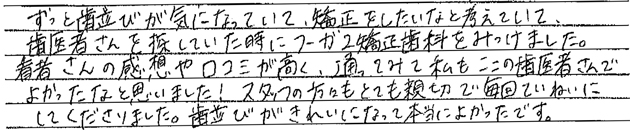 ずっと歯並びが気になっていて、矯正をしたいなと考えていて、
歯医者さんを探していた時にフーガ2矯正歯科をみつけました。
患者さんの感想や口コミが高く、通ってみて私もここの歯医者さんで
よかったなと思いました！スタッフの方もとても親切で毎回ていねいに
してくださりました。歯並びがきれいになって本当によかったです。